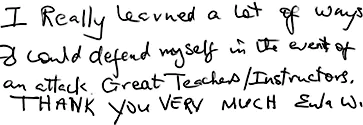 I Really learned a lot of ways
I could defend myself in the event of
an attack. Great Teachers/Instructors.
THANK YOU VERY MUCH Eula W.